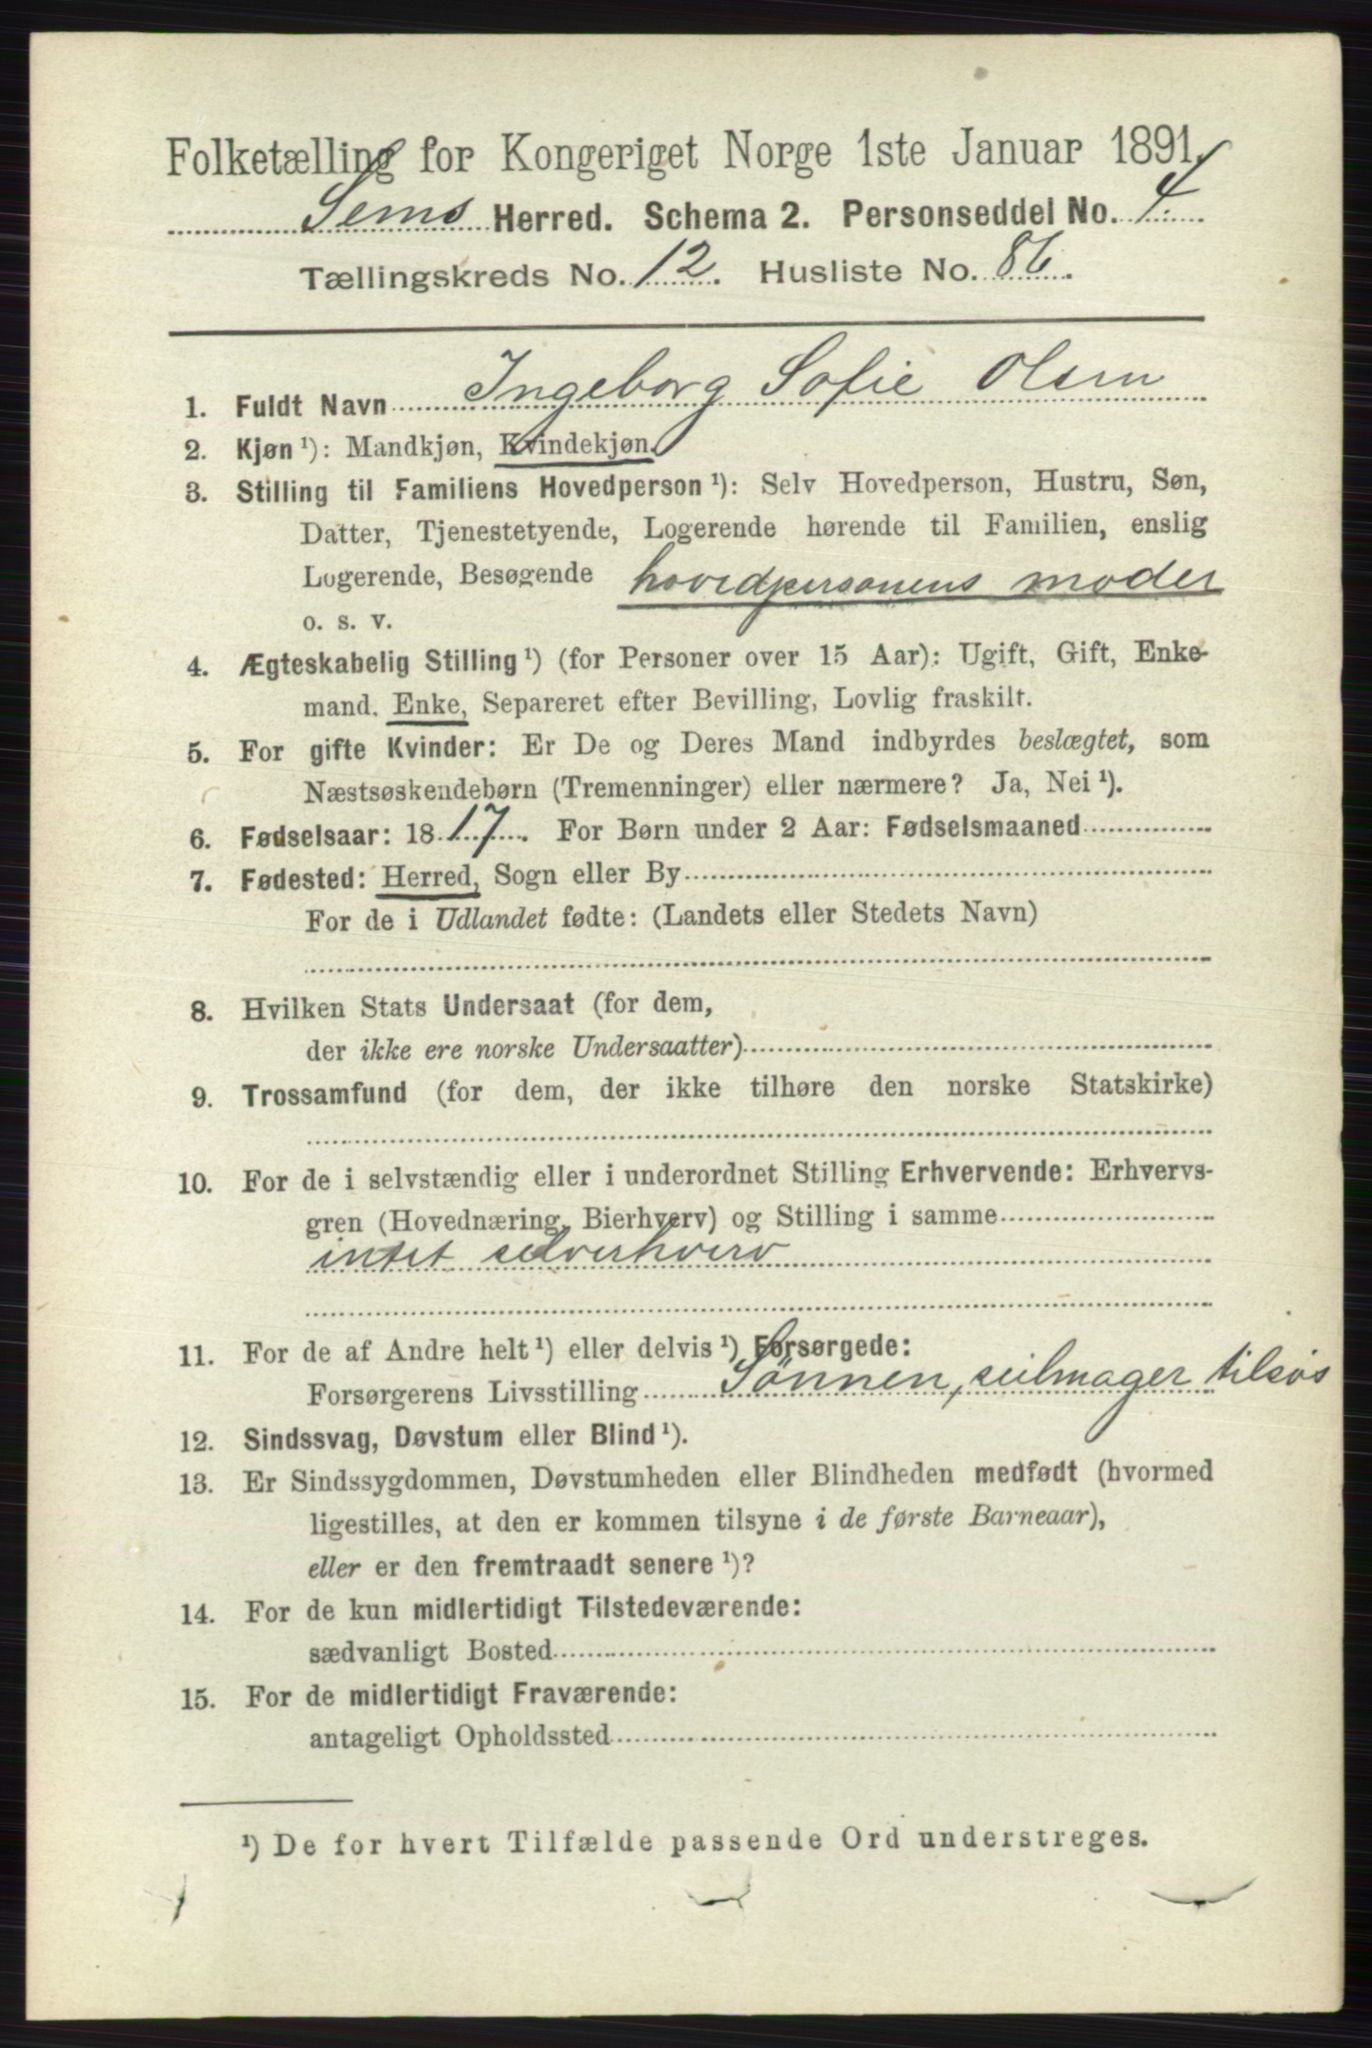 Folketælling for Kongeriget Norge 1ste Januar 1891.
Sems Herred. Schema 2. Personseddel No. 4.
Tællingskreds No. 12. Husliste No. 86.
1. Fuldt Navn Ingeborg Sofie Olsen
2. Kjøn ¹): Mandkjøn, Kvindekjøn.
3. Stilling til Familiens Hovedperson ¹): Selv Hovedperson, Hustru, Søn,
Datter, Tjenestetyende, Logerende hørende til Familien, enslig
Logerende, Besøgende hovedpersonens moder
o. s. v.
4. Ægteskabelig Stilling ¹) (for Personer over 15 Aar): Ugift, Gift, Enke-
mand, Enke, Separeret efter Bevilling, Lovlig fraskilt.
5. For gifte Kvinder: Er De og Deres Mand indbyrdes beslægtet, som
Næstsøskendebørn (Tremenninger) eller nærmere? Ja, Nei ¹).
6. Fødselsaar: 1817. For Børn under 2 Aar: Fødselsmaaned
7. Fødested: Herred, Sogn eller By
For de i Udlandet fødte: (Landets eller Stedets Navn)
8. Hvilken Stats Undersaat (for dem,
der ikke ere norske Undersaatter)
9. Trossamfund (for dem, der ikke tilhøre den norske Statskirke)
10. For de i selvstændig eller i underordnet Stilling Erhvervende: Erhvervs-
gren (Hovednæring, Bierhverv) og Stilling i samme
intet selverhverv
11. For de af Andre helt ¹) eller delvis ¹) Forsørgede:
Forsørgerens Livsstilling Sønnen, seilmager tilsøs
12. Sindssvag, Døvstum eller Blind ¹).
13. Er Sindssygdommen, Døvstumheden eller Blindheden medfødt (hvormed
ligestilles, at den er kommen tilsyne i de første Barneaar),
eller er den fremtraadt senere ¹)?
14. For de kun midlertidigt Tilstedeværende:
sædvanligt Bosted
15. For de midlertidigt Fraværende:
antageligt Opholdssted
¹) De for hvert Tilfælde passende Ord understreges.